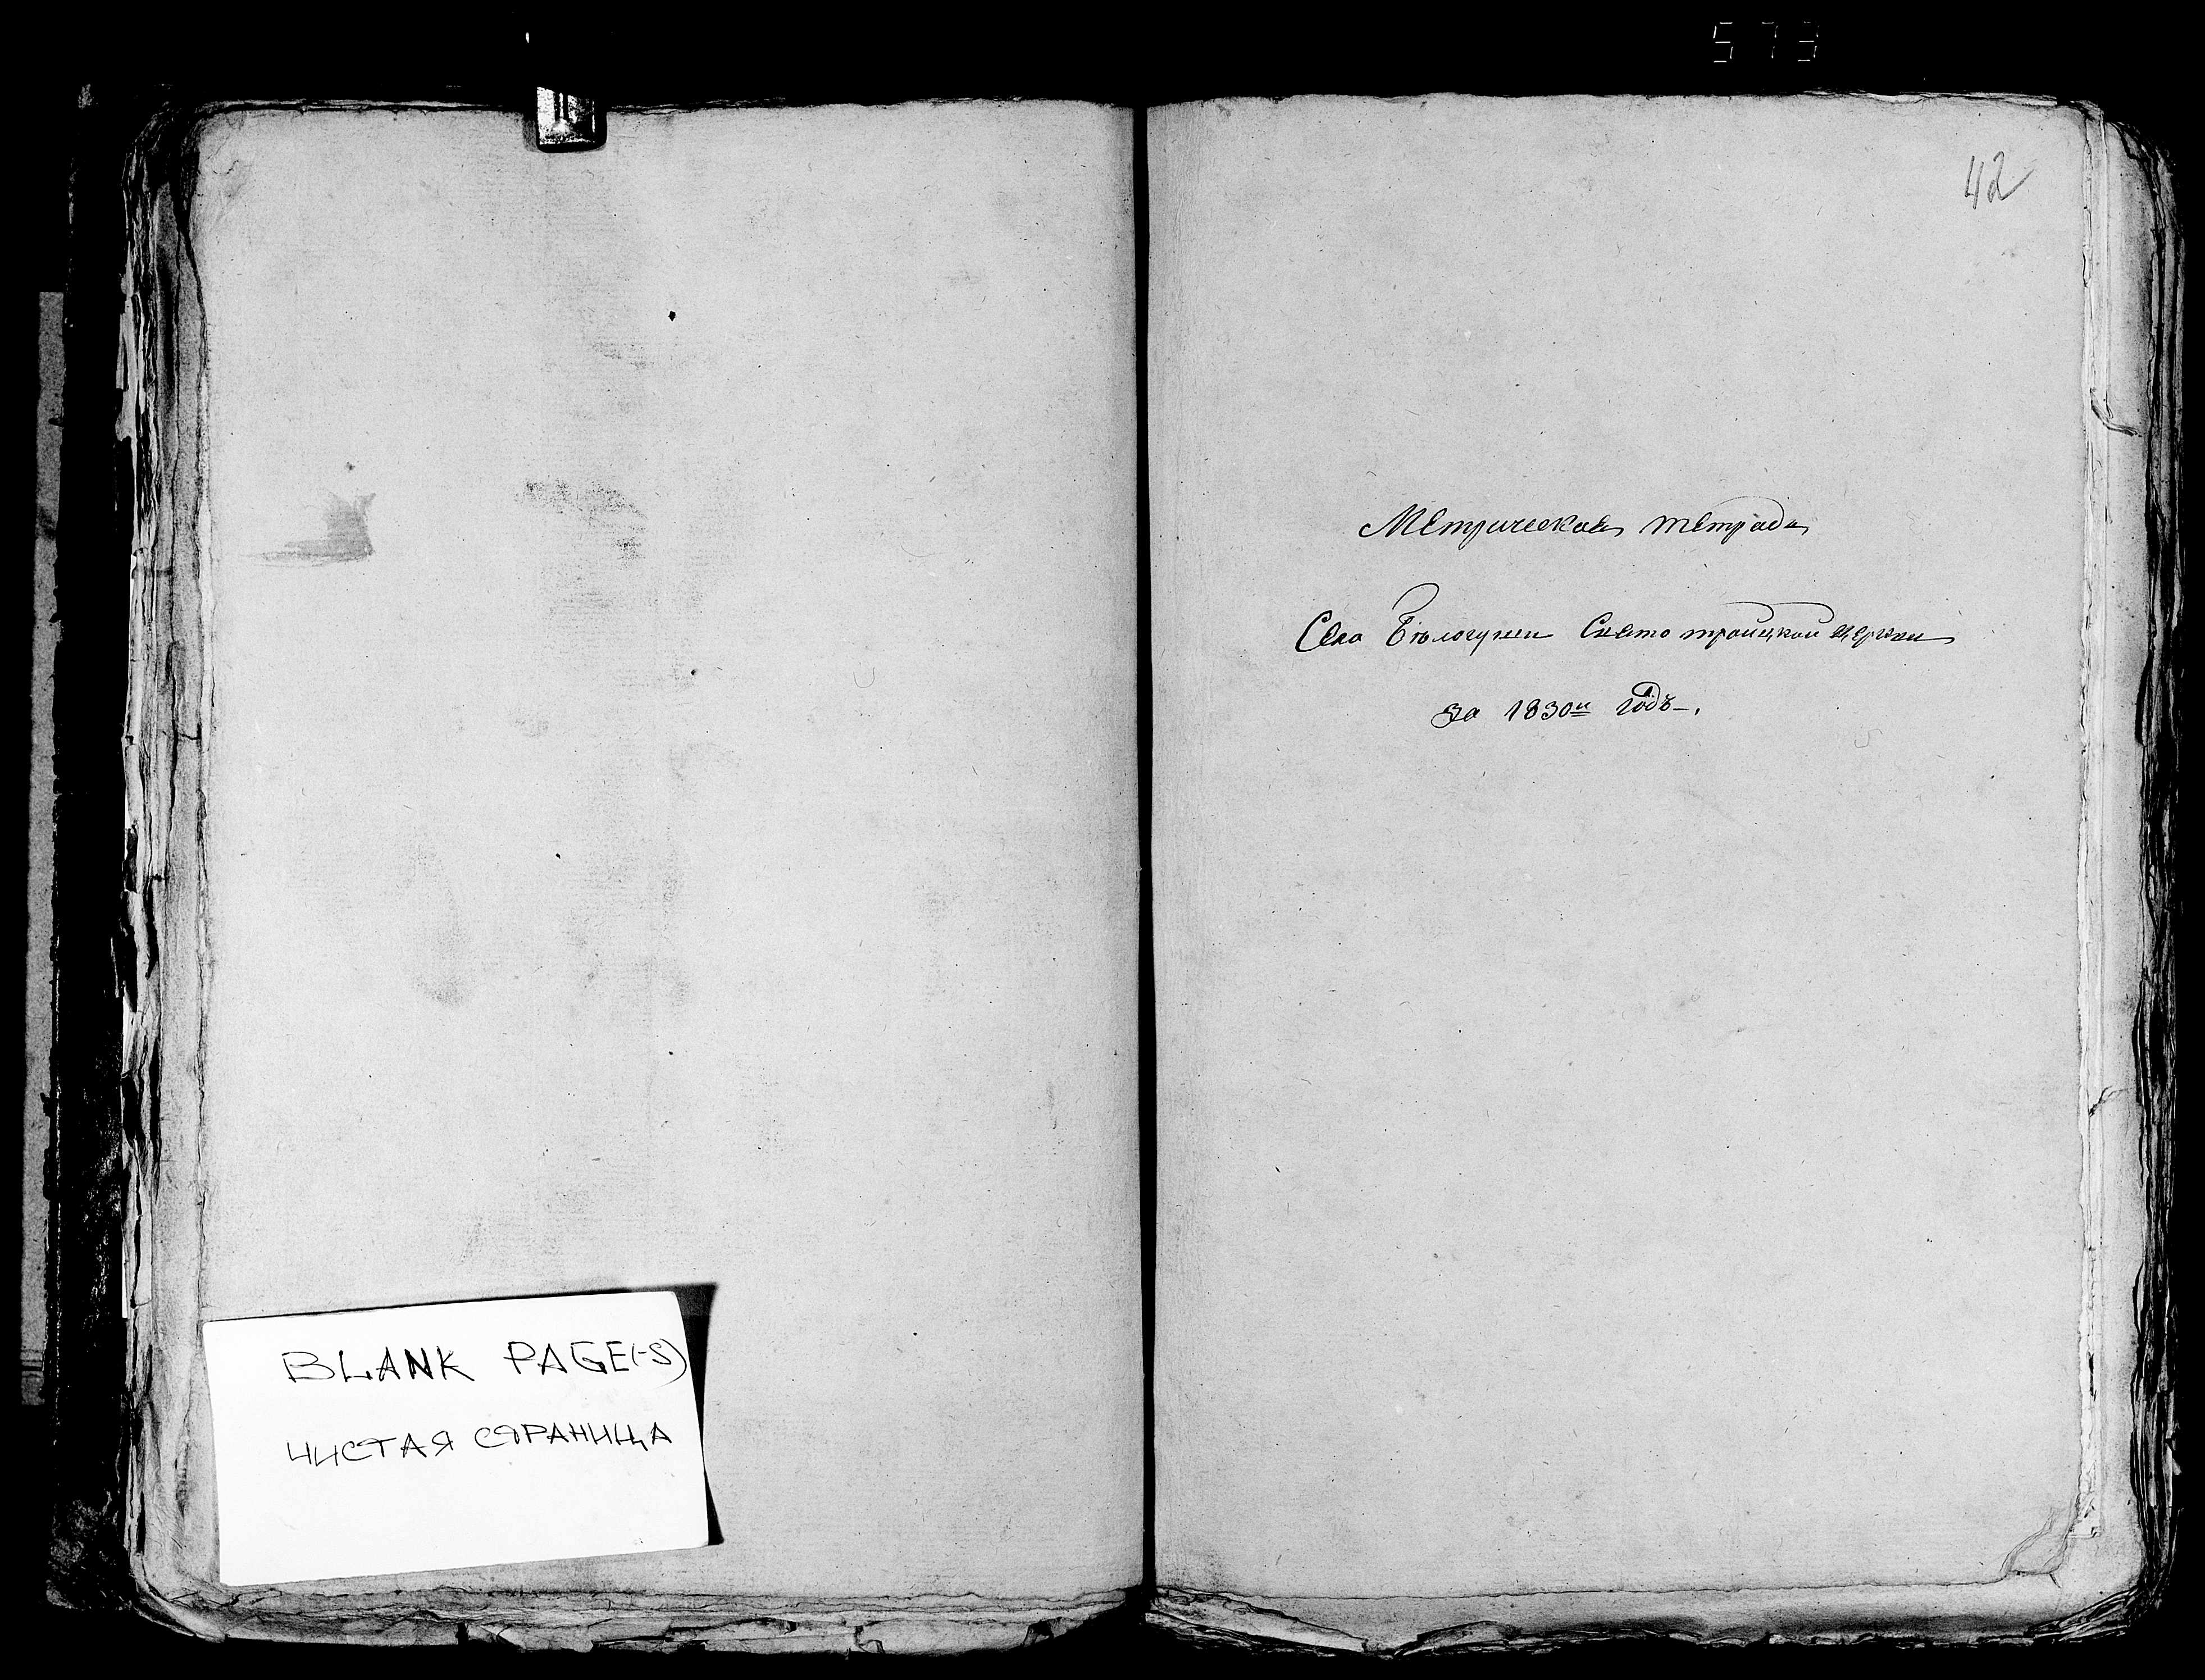 573
42
Метрическая тетрадь
Села Бѣлогузки Свято троицкой церкви
за 1830й годъ.
BLANK PAGE(-S)
ЧИСТАЯ СТРАНИЦА